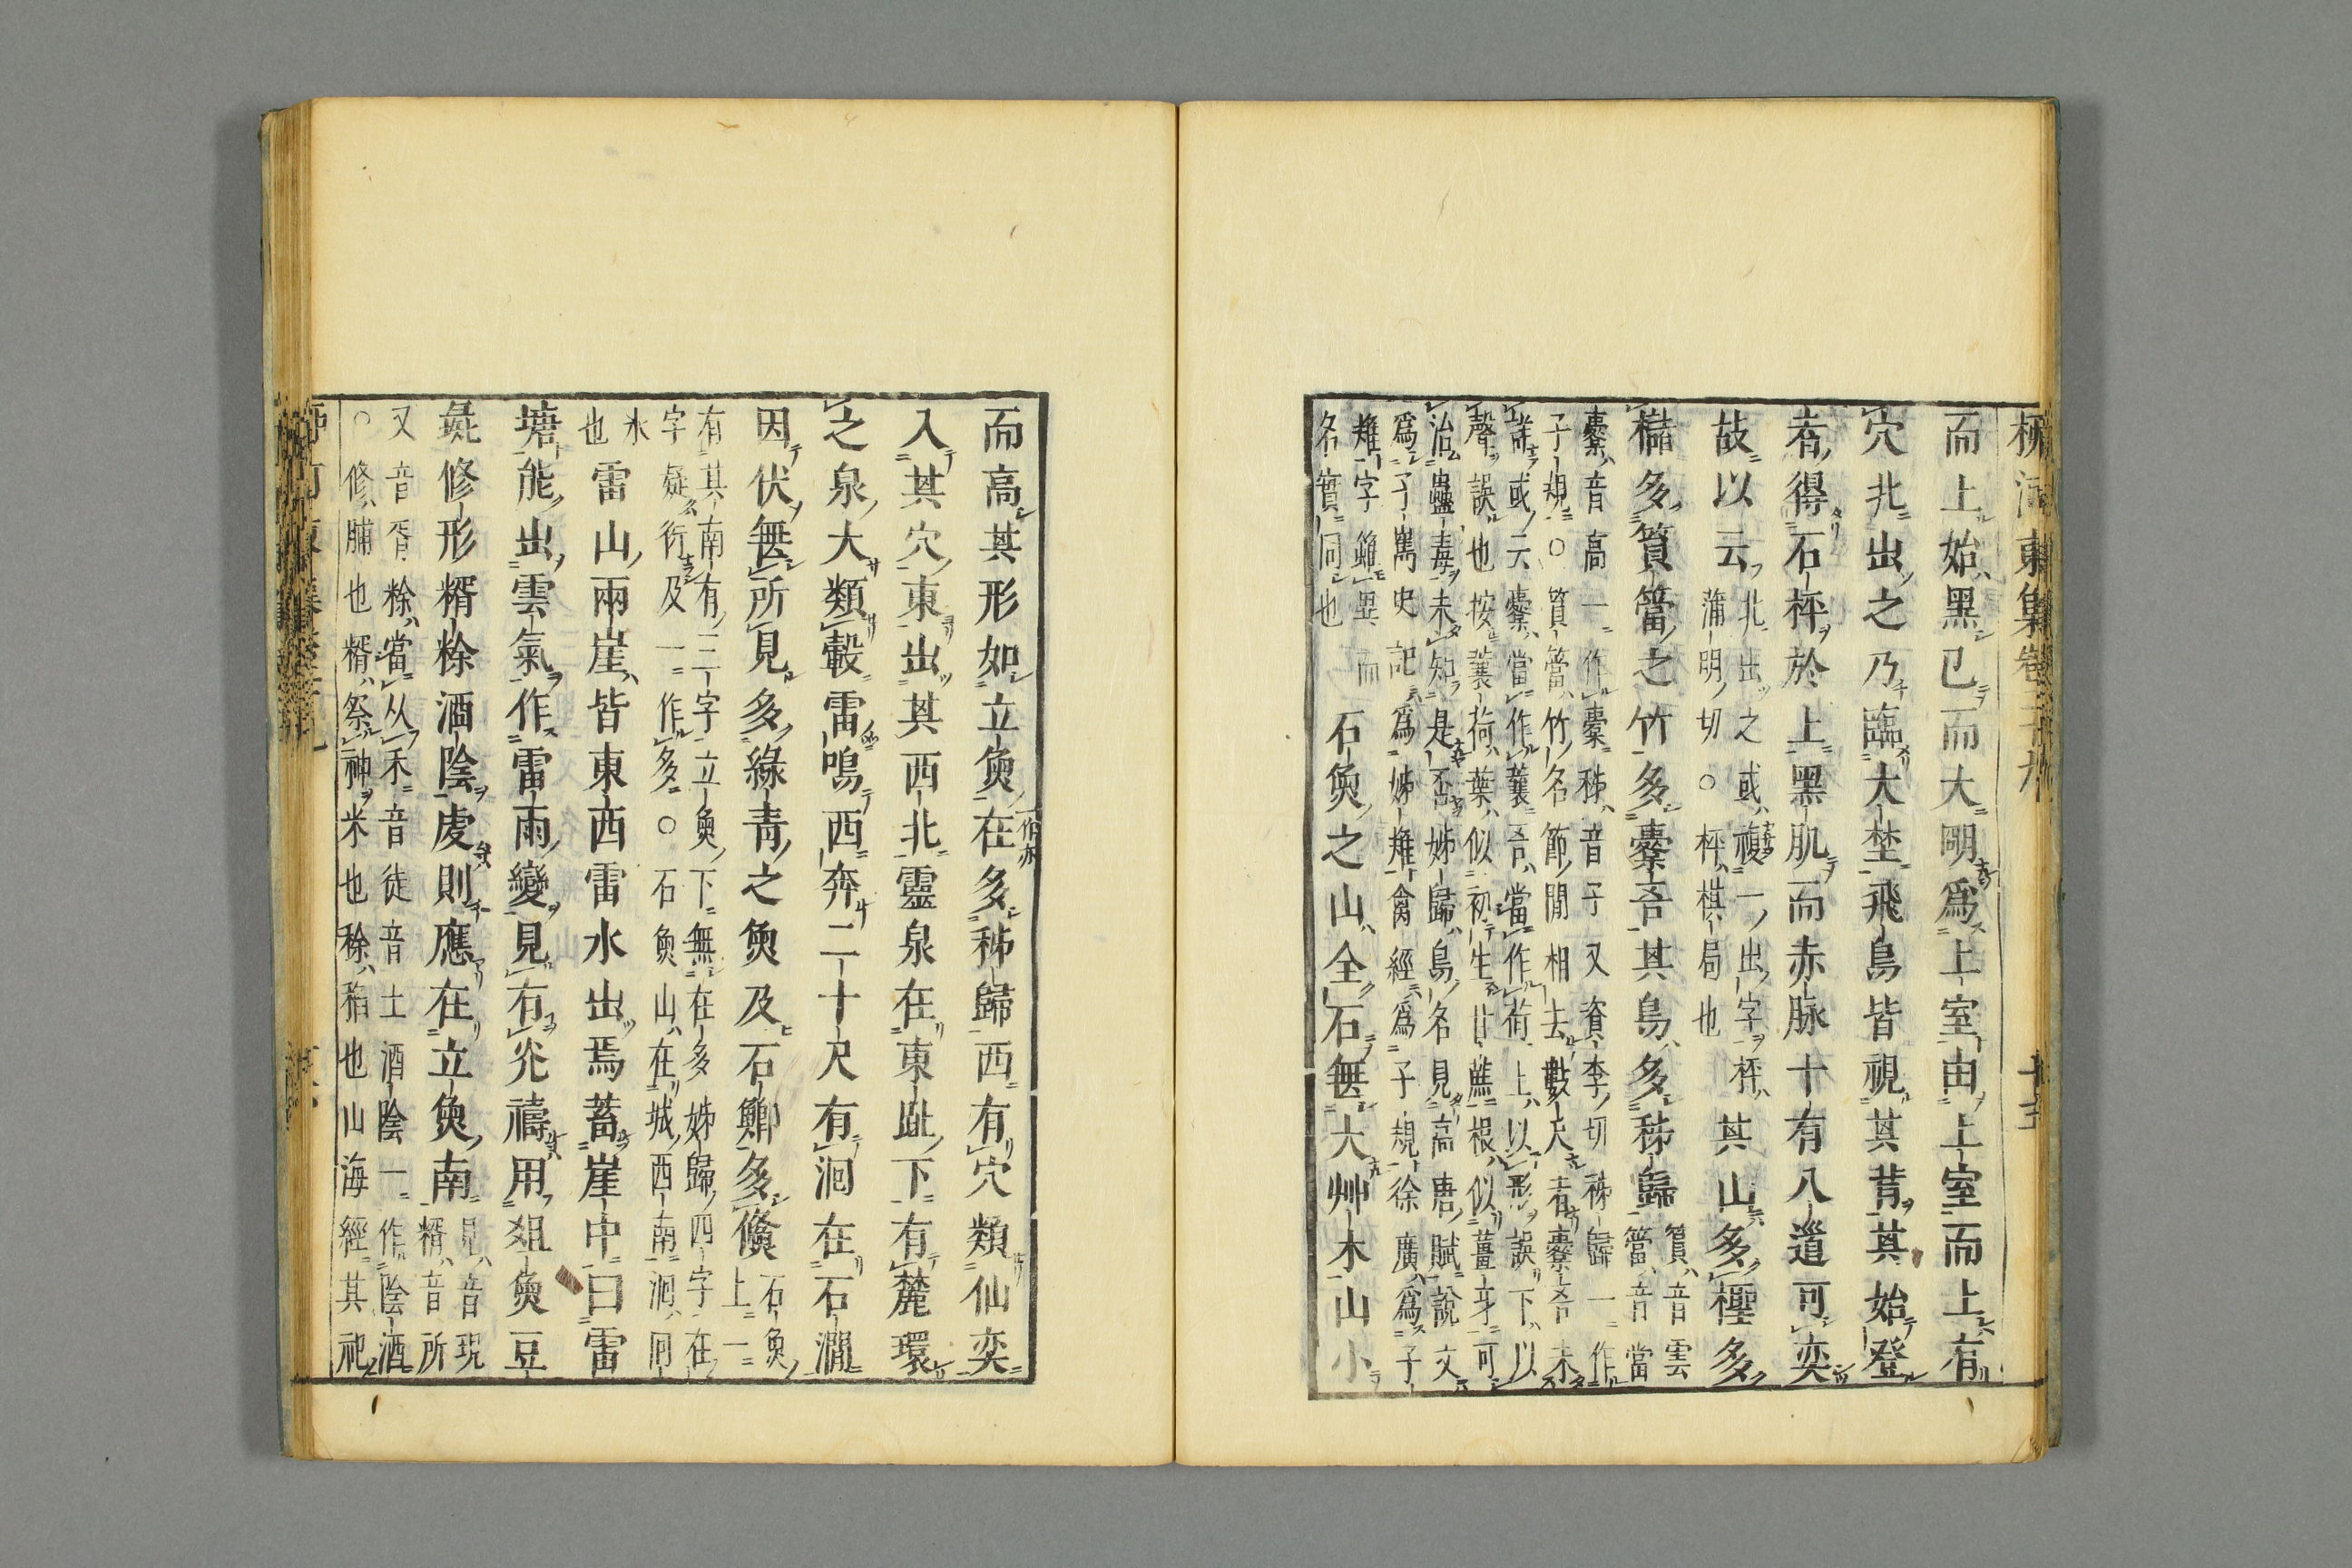 柳河東集卷二十九
而上始黒已而大明爲上室由上室而上有
穴北出之乃臨大埜飛鳥皆視其背其始登
者得石枰於上黒肌而赤脉十有八道可奕
故以云
北出之或複一出字枰
蒲明切○枰棋局也
其山多檉多
櫧多篔簹之竹多櫜吾其鳥多秭歸
篔音雲
簹音當
櫜音高一作櫜秭音子又資李切秭歸一作
子規○篔簹竹名節間相去數尺者櫜吾未
詳或云櫜當作蘘吾當作荷上以形誤下以
聲誤也按蘘荷葉似初生甘蔗根似薑芽可
治蠱毒未知是否姊歸鳥名見高唐賦說文
爲子嶲史記爲姊鴂禽經爲子規徐廣爲子
雉字雖異而
名實同也
石魚之山全石無大艸木山小
而高其形如立魚
一作亦
在多秭歸西有穴類仙奕
入其穴東出其西北靈泉在東趾下有麓環
之泉大類轂雷鳴西奔二十尺有洄在石澗
因伏無所見多綠青之魚及石鯽多儵
石魚
上一
有其南有三字立魚下無在多姊歸四字在
字疑衍及一作多○石魚山在城西南洄囘
水
也
雷山兩崖皆東西雷水出焉蓄崖中曰雷
塘能出雲氣作雷雨變見有光禱用俎魚豆
彘修形糈稌酒陰虔則應在立魚南
見音現
糈音所
又音胥稌當从禾音徒音土酒陰一作陰酒
○修脯也糈祭神米也稌稻也山海經其祀